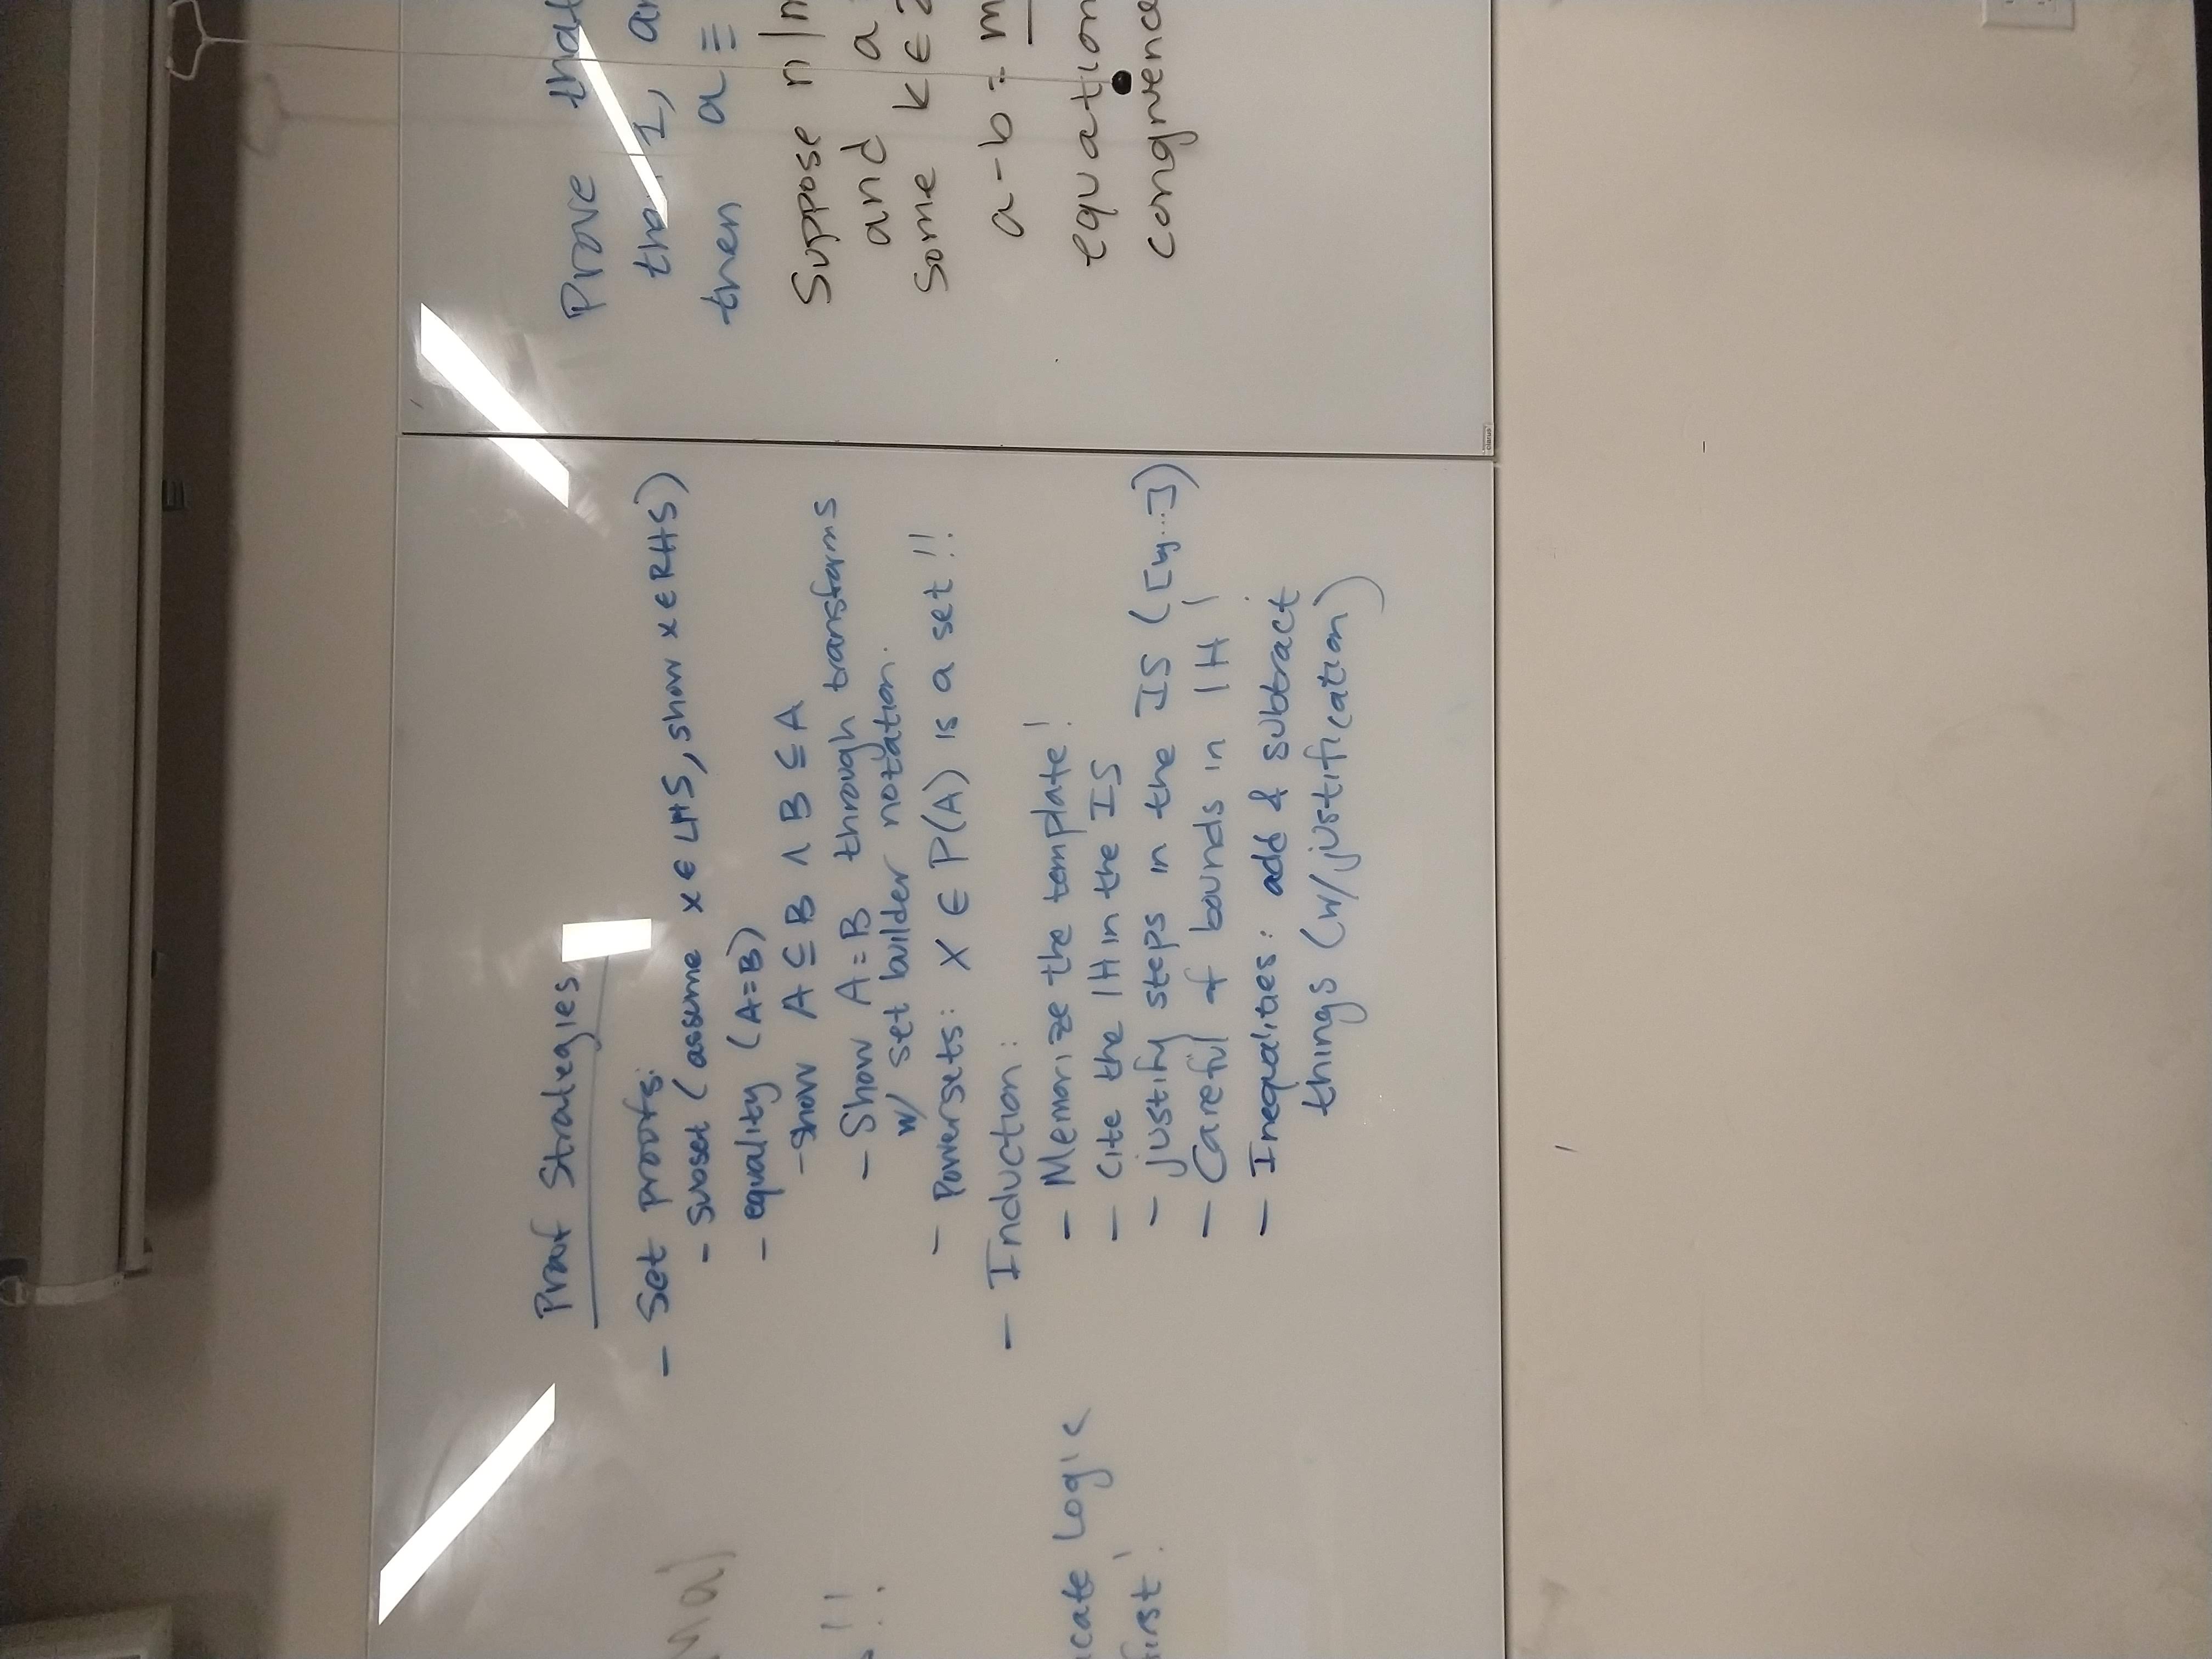 Proof Strategies
- Set proofs:
- subset (assume x ∈ LHS, show x ∈ RHS)
- equality (A=B)
- show A ⊆ B ∧ B ⊆ A
- Show A=B through transforms
w/ set builder notation.
- Powersets: X ∈ P(A) is a set!!
- Induction:
- Memorize the template!
- Cite the IH in the IS
- justify steps in the IS ([by...])
- Careful of bounds in IH!
- Inequalities: add & subtract
things (w/ justification)
!!
icate Logic
first!
Prove that
than 1, an
then a ≡
Suppose n|m
and a
Some k ∈ Z
a-b = m
equation
congruence
clarus